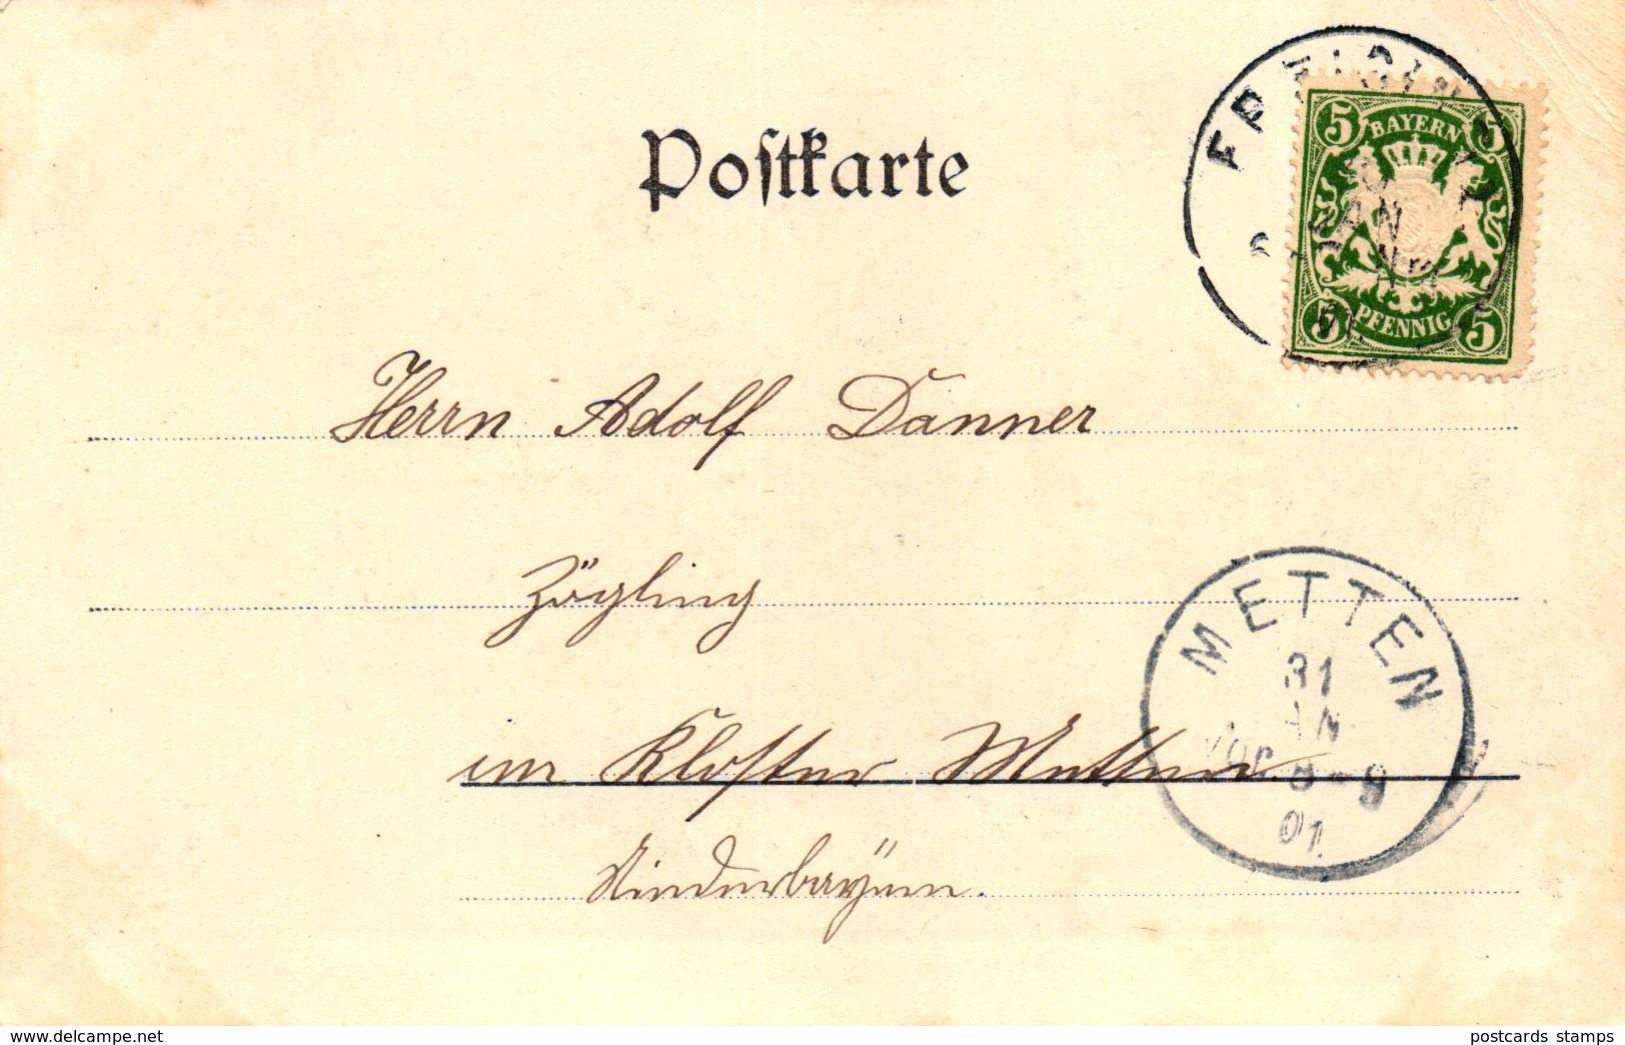 Postkarte
5 BAYERN 5
5 PFENNIG 5
JAN
Herrn Adolf Danner
Zögling
im Kloster Metten
Niederbayern.
METTEN
31
JAN
Vor. 8-9
01.
www.delcampe.net
postcards stamps